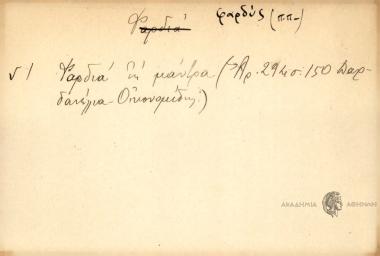 Φαρδιά φαρδύς (ππ-)
ν! Φαρδιά ἡ μάντρα (Ἀρ. 294 σ. 150 Δαρ-
δανέλλια - Οἰκονομίδης.)
ΑΚΑΔΗΜΙΑ ΑΘΗΝΩΝ